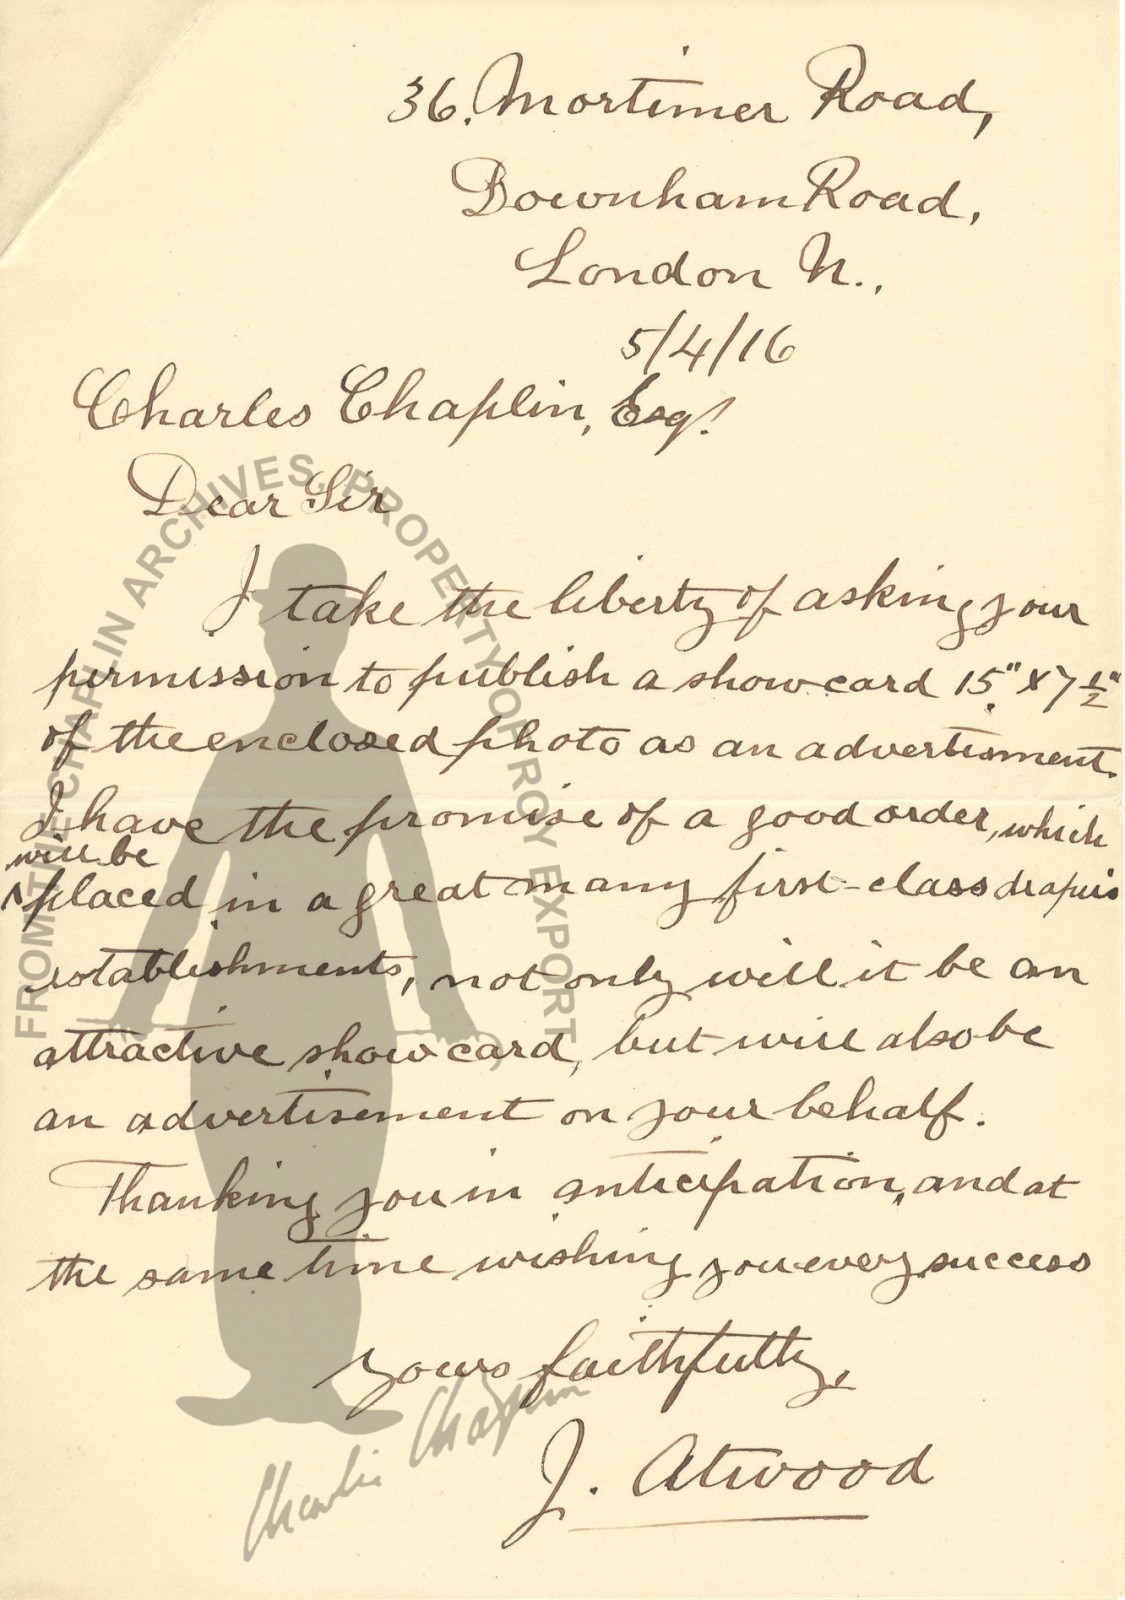 36. Mortimer Road,
Downham Road,
London N.,
5/4/16
Charles Chaplin, Esq.
Dear Sir
I take the liberty of asking your
permission to publish a showcard 15" x 7 1/2"
of the enclosed photo as an advertisment.
I have the promise of a good order, which
will be
^placed in a great many first-class
establishments, not only will it be an
attractive showcard, but will also be
an advertisement on your behalf.
Thanking you in anticipation, and at
the same time wishing you every success
yours faithfully,
J. Atwood
FROM THE CHAPLIN ARCHIVES, PROPERTY OF ROY EXPORT
Charlie Chaplin